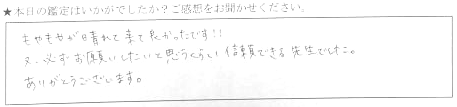 ★本日の鑑定はいかがでしたか？ご感想をお聞かせください。
もやもやが晴れて来て良かったです!!
又、必ずお願いしたいと思うくらい信頼できる先生でした。
ありがとうございます。